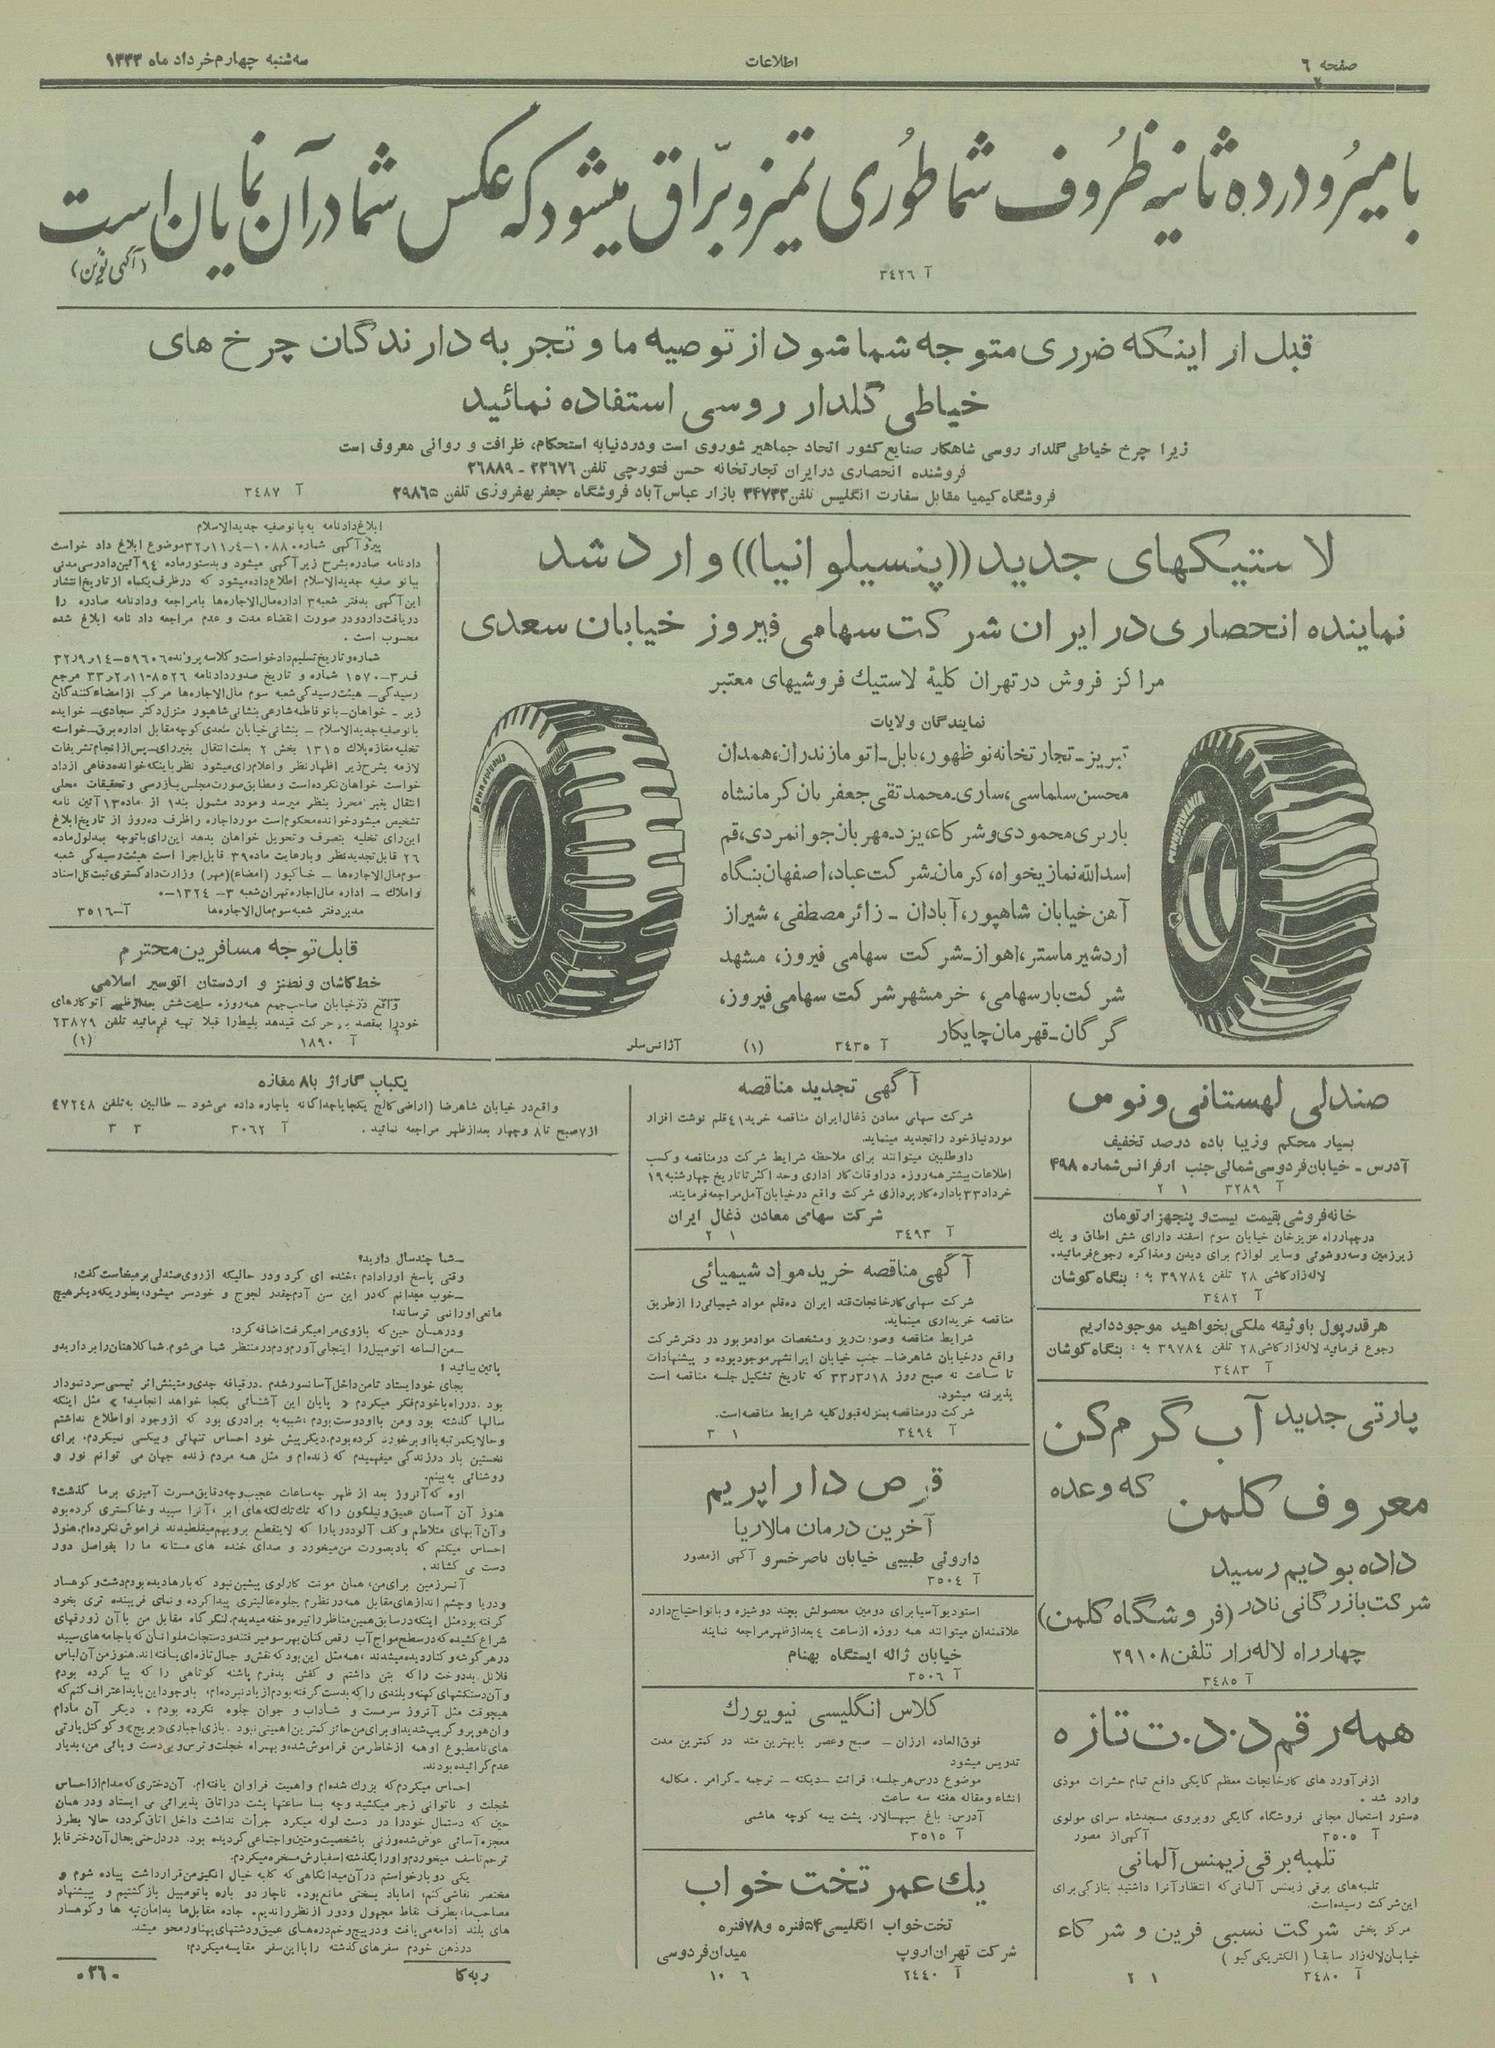 صفحه ٦
اطلاعات
سه‌شنبه چهارم خرداد ماه ۱۳۳۳
با میرُو در ده ثانیه ظُروف شما طُوری تمیز و برّاق میشود که عکس شما در آن نمایان است
(آگهی نوین)
آ ٣٤٢٦
قبل از اینکه ضرری متوجه شما شود از توصیه ما و تجربه دارندگان چرخ های
خیاطی گلدار روسی استفاده نمائید
زیرا چرخ خیاطی گلدار روسی شاهکار صنایع کشور اتحاد جماهیر شوروی است و در دنیا به استحکام، ظرافت و روانی معروف است
فروشنده انحصاری در ایران تجارتخانه حسن فتورچی تلفن ۲۲٦٧٦ - ٢٦٨٨٩
فروشگاه کیمیا مقابل سفارت انگلیس تلفن ۳۴۷۳۲ بازار عباس آباد فروشگاه جعفر بهفروزی تلفن ۲۹۸٦۵
آ ٣٤٨٧
لاستیکهای جدید ((پنسیلوانیا)) وارد شد
نماینده انحصاری در ایران شرکت سهامی فیروز خیابان سعدی
مراکز فروش در تهران کلیهٔ لاستیك فروشیهای معتبر
نمایندگان ولایات
تبریز ـ تجارتخانه نوظهور، بابل ـ اتومازندران، همدان
محسن سلماسی، ساری ـ محمدتقی جعفریان کرمانشاه
باربری محمودی و شرکاء، یزد ـ مهربان جوانمردی، قم
اسدالله نمازیخواه، کرمان ـ شرکت عباد، اصفهان بنگاه
آهن خیابان شاهپور، آبادان ـ زائر مصطفی، شیراز
اردشیر ماستر، اهواز ـ شرکت سهامی فیروز، مشهد
شرکت بار سهامی، خرمشهر شرکت سهامی فیروز،
گرگان ـ قهرمان چایکار
آ ٣٤٣٥ (١) آژانس سلر
PENNSYLVANIA
PENNSYLVANIA
ابلاغ دادنامه به بانو صفیه جدیدالاسلام
پیرو آگهی شماره ۱۰۸۸۰-۳۲ر۱۱ر٤ موضوع ابلاغ داد خواست
دادنامه صادره بشرح زیر آگهی میشود و بدستور ماده ٩٤ آئین دادرسی مدنی
ببانو صفیه جدیدالاسلام اطلاع داده میشود که در ظرف یکماه از تاریخ انتشار
این آگهی بدفتر شعبه ۳ اداره مال الاجاره‌ها بامراجعه و دادنامه صادره را
دریافت دارد و در صورت انقضاء مدت و عدم مراجعه داد نامه ابلاغ شده
محسوب است .
شماره و تاریخ تسلیم دادخواست و کلاسه پرونده ۵۹٦۰٦-۳۲ر۹ر۱٤
ف ر ۳-۱۵۷۰ شماره و تاریخ صدور دادنامه ۸۵۲٦-۳۳ر۲ر۱۱ مرجع
رسیدگی – هیئت رسیدگی شعبه سوم مال الاجاره‌ها مرکب از امضاء کنندگان
زیر – خواهان – بانو فاطمه شارعی بنشانی شاهپور منزل دکتر سجادی – خوانده
بانو صفیه جدیدالاسلام – بنشانی خیابان سعدی کوچه مقابل اداره برق – خواسته
تخلیه مغازه پلاك ۱۳۱۵ بخش ۲ بعلت انتقال بغیر رای – پس از انجام تشریفات
لازمه بشرح زیر اظهار نظر و اعلام رای میشود نظر باینکه خوانده دفاعی از داد
خواست خواهان نکرده است و مطابق صورت مجلس بازرسی و تحقیقات محلی
انتقال بغیر محرز بنظر میرسد و مورد مشمول بند۱ از ماده۱۳ آئین نامه
تشخیص میشود خوانده محکوم است مورد اجاره را ظرف ده روز از تاریخ ابلاغ
این رای تخلیه بتصرف و تحویل خواهان بدهد این رای با توجه بمدلول ماده
۲٦ قابل تجدید نظر و با رعایت ماده ۳۹ قابل اجرا است هیئت رسیدگی شعبه
سوم مال الاجاره‌ها – خاکپور (امضاء) (مهر) وزارت دادگستری ثبت کل اسناد
و املاك – اداره مال اجاره تهران شعبه ۳ - ۱۳۲٤-۰
مدیر دفتر شعبه سوم مال الاجاره‌ها آ-۳۵۱٦
قابل توجه مسافرین محترم
خط کاشان و نطنز و اردستان اتوسیر اسلامی
واقع در خیابان صاحب جمع همه روزه ساعت شش بعد از ظهر اتوکارهای
خود را بمقصد حرکت میدهد بلیط را قبلا تهیه فرمائید تلفن ۲۳۸۷۹
آ ۱۸۹۰ (۱)
صندلی لهستانی ونوس
بسیار محکم وزیبا با ده درصد تخفیف
آدرس - خیابان فردوسی شمالی جنب ارفرانس شماره ۴۹۸
آ ۳۲۸۹ ۱ ۲
خانه فروشی بقیمت بیست و پنجهزار تومان
در چهارراه عزیزخان خیابان سوم اسفند دارای شش اطاق و یك
زیرزمین و سه روشوئی و سایر لوازم برای دیدن و مذاکره رجوع فرمائید.
لاله زار کاشی ۲۸ تلفن ۳۹۷۸٤ به: بنگاه کوشان
آ ۳٤۸۲
هر قدر پول با وثیقه ملکی بخواهید موجود داریم
رجوع فرمائید لاله زار کاشی ۲۸ تلفن ۳۹۷۸٤ به: بنگاه کوشان
آ ۳٤۸۳
پارتی جدید آب گرم کن
معروف کلمن که وعده
داده بودیم رسید
شرکت بازرگانی نادر (فروشگاه کلمن)
چهارراه لاله زار تلفن ۳۹۱۰۸
آ ۳٤۸۵
همه رقم د.د.ت تازه
از فرآورد های کارخانجات معظم گایگی دافع تمام حشرات موذی
وارد شد .
دستور استعمال مجانی فروشگاه گایگی روبروی مسجد شاه سرای مولوی
آ ۳۵۰۵ آگهی از مصور
تلمبه برقی زیمنس آلمانی
تلمبه‌های برقی زیمنس آلمانی که انتظار آنرا داشتید بتازگی برای
این شرکت رسیده است.
مرکز پخش شرکت نسبی فرین و شرکاء
خیابان لاله زار سابقا ( الکتریکی کیو )
آ ۳٤۸۰ ۱ ۲
آگهی تجدید مناقصه
شرکت سهامی معادن ذغال ایران مناقصه خرید ٤١ قلم نوشت افزار
مورد نیاز خود را تجدید مینماید.
داوطلبین میتوانند برای ملاحظه شرایط شرکت در مناقصه و کسب
اطلاعات بیشتر همه روزه در اوقات کار اداری وحد اکثر تا تاریخ چهارشنبه ۱۹
خرداد ۳۳ باداره کارپردازی شرکت واقع در خیابان آمل مراجعه فرمایند.
شرکت سهامی معادن ذغال ایران
آ ۳٤۹۳ ۱ ۲
آگهی مناقصه خرید مواد شیمیائی
شرکت سهامی کارخانجات قند ایران ده قلم مواد شیمیائی را از طریق
مناقصه خریداری مینماید.
شرایط مناقصه وصورت ریز و مشخصات مواد مزبور در دفتر شرکت
واقع در خیابان شاهرضا - جنب خیابان ایرانشهر موجود بوده و پیشنهادات
تا ساعت نه صبح روز ۳۳٫۳٫۱۸ که تاریخ تشکیل جلسه مناقصه است
پذیرفته میشود.
شرکت در مناقصه بمنزله قبول کلیه شرایط مناقصه است.
آ ۳٤۹٤ ۱ ۳
قرص داراپریم
آخرین درمان مالاریا
داروئی طبیبی خیابان ناصرخسرو آگهی از مصور
آ ۳۵۰٤
استودیو آسیا برای دومین محصولش بچند دوشیزه و بانو احتیاج دارد
علاقمندان میتوانند همه روزه از ساعت ٤ بعد از ظهر مراجعه نمایند
خیابان ژاله ایستگاه بهنام
آ ۳۵۰٦
کلاس انگلیسی نیویورك
فوق العاده ارزان – صبح و عصر با بهترین متد در کمترین مدت
تدریس میشود
موضوع درس هر جلسه: قرائت – دیکته – ترجمه – گرامر . مکالمه
انشاء و مقاله هفته سه ساعت
آدرس: باغ سپهسالار. پشت بیمه کوچه هاشمی
آ ۳۵۱۵
یك عمر تخت خواب
تخت خواب انگلیسی ۵۴ فنره و ۷۸ فنره
شرکت تهران اروپ میدان فردوسی
آ ۲٤٤۰ ٦ ۱۰
یکباب گاراژ با ۸ مغازه
واقع در خیابان شاهرضا (اراضی کالج یکجا یا جداگانه باجاره داده می‌شود – طالبین به تلفن ٤٧٢٤٨
از ۷ صبح تا ۸ و چهار بعد از ظهر مراجعه نمائید . آ ۳۰٦۲ ۳ ۳
ـ شما چند سال دارید؟
وقتی پاسخ او را دادم ، خنده ای کرد و در حالیکه از روی صندلی برمیخاست گفت:
ـ خوب میدانم که در این سن آدم چقدر لجوج و خودسر میشود، بطوریکه دیگر هیچ
مانعی او را نمی ترساند!
و در همان حین که بازوی مرا میگرفت اضافه کرد:
ـ من الساعه اتومبیل را اینجا می‌آورم و دم در منتظر شما می‌شوم. شما کلاهتان را بردارید و
پائین بیائید !
بجای خود ایستاد تا من داخل آسانسور شدم . در قیافه جدی و متینش اثر تبسمی سرد نمودار
بود . در راه با خودم فکر میکردم « پایان این آشنائی بکجا خواهد انجامید؟ » مثل اینکه
سالها گذشته بود و من با او دوست بودم ، شبیه به برادری بود که از وجود او اطلاع نداشتم
و حالا یکمرتبه با او برخورد کرده بودم. دیگر پیش خود احساس تنهائی و بیکسی نمیکردم. برای
نخستین بار در زندگی میفهمیدم که زنده‌ام و مثل همه مردم زنده جهان می توانم نور و
روشنائی به بینم.
اوه که آنروز بعد از ظهر چه ساعات عجیب و چه دقایق مسرت آمیزی بر ما گذشت؟
هنوز آن آسمان عمیق و نیلگون را که تك تك لکه های ابر ، آنرا سپید و خاکستری کرده بود
و آن آبهای متلاطم و کف آلود دریا را که لاینقطع برویهم میغلطیدند فراموش نکرده ام. هنوز
احساس میکنم که باد بصورت من میخورد و صدای خنده های مستانه ما را بفواصل دور
دست می کشاند .
آنسرزمین برای من، همان مونت کارلوی پیشین نبود که بارها دیده بودم دشت و کوهسار
و دریا و چشم اندازهای مقابل همه در نظرم جلوه عالیتری پیدا کرده و نمای فریبنده تری بخود
گرفته بود مثل اینکه در سابق همین مناظر را تیره و خفه میدیدم. لنگرگاه مقابل من با آن زورقهای
شراع کشیده که در سطح مواج آب رقص کنان بهر سو میرفتند و دستجات ملوانان که با جامه های سپید
در هر گوشه و کنار دیده میشدند ، همه مثل این بود که نقش و جمال تازه‌ای یافته اند. هنوز من آن لباس
فلانل بد دوخت را که بتن داشتم و کفش بدفرم پاشنه کوتاهی را که بپا کرده بودم
و آن دستکشهای کهنه و بلندی را که بدست گرفته بودم از یاد نبرده‌ام، با وجود این باید اعتراف کنم که
هیچوقت مثل آنروز سرمست و شاداب و جوان جلوه نکرده بودم . دیگر آن مادام
وان هوپر و گریپ شدید او برای من حائز کمترین اهمیتی نبود . بازی اجباری «بریج» و کوکتل پارتی
های نامطبوع او همه از خاطر من فراموش شده و بهمراه خجلت و ترس و بی دست و پائی من، بدیار
عدم گرائیده بودند.
احساس میکردم که بزرك شده ام و اهمیت فراوان یافته ام. آن دختری که مدام از احساس
خجلت و ناتوانی زجر میکشید و چه بسا ساعتها پشت در اتاق پذیرائی می ایستاد و در همان
حین که دستمال خود را در دست لوله میکرد جرأت نداشت داخل اتاق گردد، حالا بطرز
معجزه آسائی عوض شده و زنی با شخصیت و متین و اجتماعی گردیده بود. در دل حتی بحال آن دختر قابل
ترحم تاسف میخوردم و او را بگذشته اسفبارش مسخره میکردم.
یکی دو بار خواستم در آن میدانگاهی که کلبه خیال انگیز من قرار داشت پیاده شوم و
مختصر نقاشی کنم، اما باد بسختی مانع بود. ناچار دو باره با تومبیل بازگشتیم و پیشنهاد
مصاحب ما، بطرف نقاط مجهول و دور از نظر راندیم. جاده مقابل ما بدامان تپه ها و کوهسار
های بلند ادامه می یافت و در پیچ و خم دره های عمیق و دشتهای پهناور محو میشد.
در ذهن خودم سفرهای گذشته را با این سفر مقایسه میکردم!
ربه کا
-۲٦۰-